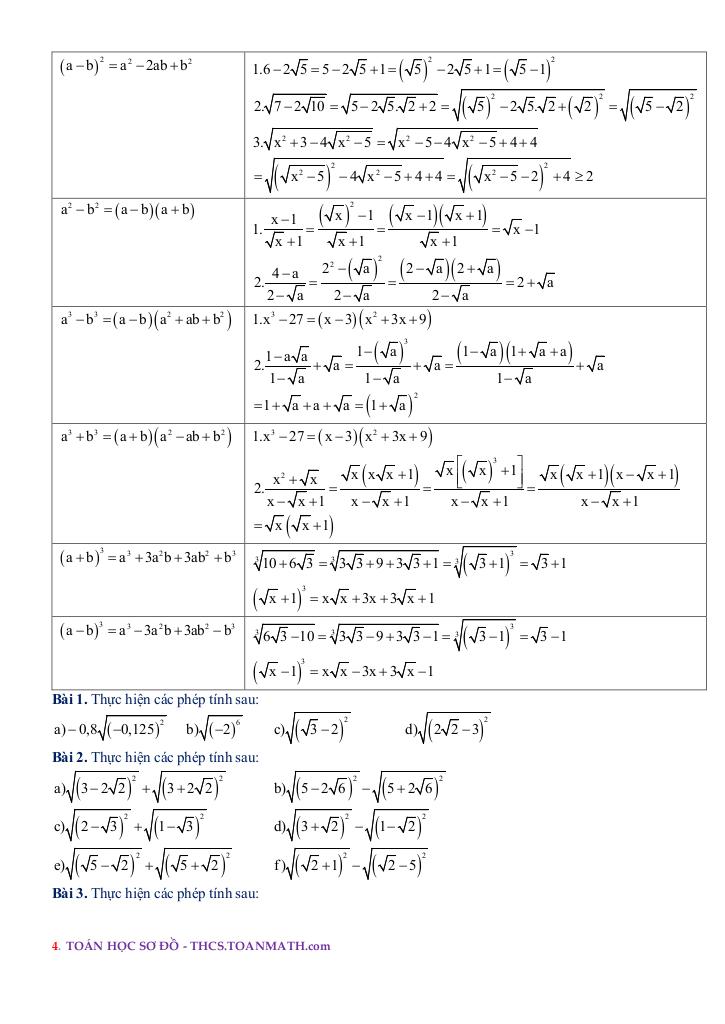 (a − b)² = a² − 2ab + b²
1.6 − 2√5 = 5 − 2√5 + 1 = (√5)² − 2√5 + 1 = (√5 − 1)²
2.√(7 − 2√10) = √(5 − 2√5.√2 + 2) = √((√5)² − 2√5.√2 + (√2)²) = √((√5 − √2)²)
3.√(x² + 3 − 4√(x² − 5)) = √(x² − 5 − 4√(x² − 5) + 4 + 4)
= √((√(x² − 5))² − 4√(x² − 5) + 4 + 4) = √((√(x² − 5) − 2)² + 4) ≥ 2
a² − b² = (a − b)(a + b)
1.(x − 1)/(√x + 1) = ((√x)² − 1)/(√x + 1) = ((√x − 1)(√x + 1))/(√x + 1) = √x − 1
2.(4 − a)/(2 − √a) = (2² − (√a)²)/(2 − √a) = ((2 − √a)(2 + √a))/(2 − √a) = 2 + √a
a³ − b³ = (a − b)(a² + ab + b²)
1.x³ − 27 = (x − 3)(x² + 3x + 9)
2.(1 − a√a)/(1 − √a) + √a = (1 − (√a)³)/(1 − √a) + √a = ((1 − √a)(1 + √a + a))/(1 − √a) + √a
= 1 + √a + a + √a = (1 + √a)²
a³ + b³ = (a + b)(a² − ab + b²)
1.x³ − 27 = (x − 3)(x² + 3x + 9)
2.(x² + √x)/(x − √x + 1) = (√x(x√x + 1))/(x − √x + 1) = (√x[(√x)³ + 1])/(x − √x + 1) = (√x(√x + 1)(x − √x + 1))/(x − √x + 1)
= √x(√x + 1)
(a + b)³ = a³ + 3a²b + 3ab² + b³
∛(10 + 6√3) = ∛(3√3 + 9 + 3√3 + 1) = ∛((√3 + 1)³) = √3 + 1
(√x + 1)³ = x√x + 3x + 3√x + 1
(a − b)³ = a³ − 3a²b + 3ab² − b³
∛(6√3 − 10) = ∛(3√3 − 9 + 3√3 − 1) = ∛((√3 − 1)³) = √3 − 1
(√x − 1)³ = x√x − 3x + 3√x − 1
Bài 1. Thực hiện các phép tính sau:
a) − 0,8√((−0,125)²) b)√((−2)⁶) c)√((√3 − 2)²) d)√((2√2 − 3)²)
Bài 2. Thực hiện các phép tính sau:
a)√((3 − 2√2)²) + √((3 + 2√2)²) b)√((5 − 2√6)²) − √((5 + 2√6)²)
c)√((2 − √3)²) + √((1 − √3)²) d)√((3 + √2)²) − √((1 − √2)²)
e)√((√5 − √2)²) + √((√5 + √2)²) f)√((√2 + 1)²) − √((√2 − 5)²)
Bài 3. Thực hiện các phép tính sau:
4. TOÁN HỌC SƠ ĐỒ - THCS.TOANMATH.com